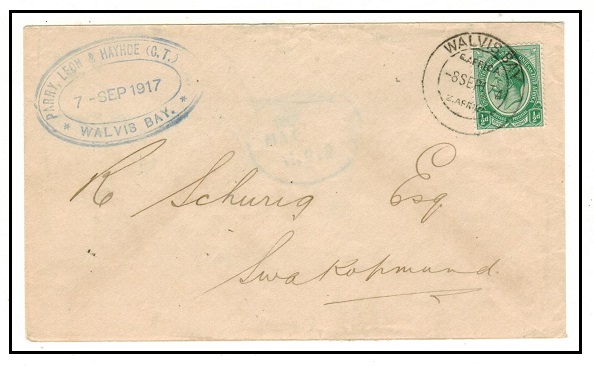 PARRY, LEON & HAYHOE (C.T.)
7 - SEP 1917
* WALVIS BAY. *
WALVIS BAY
-8 SE
½d ½d
R Schurig Esq
Swakopmund